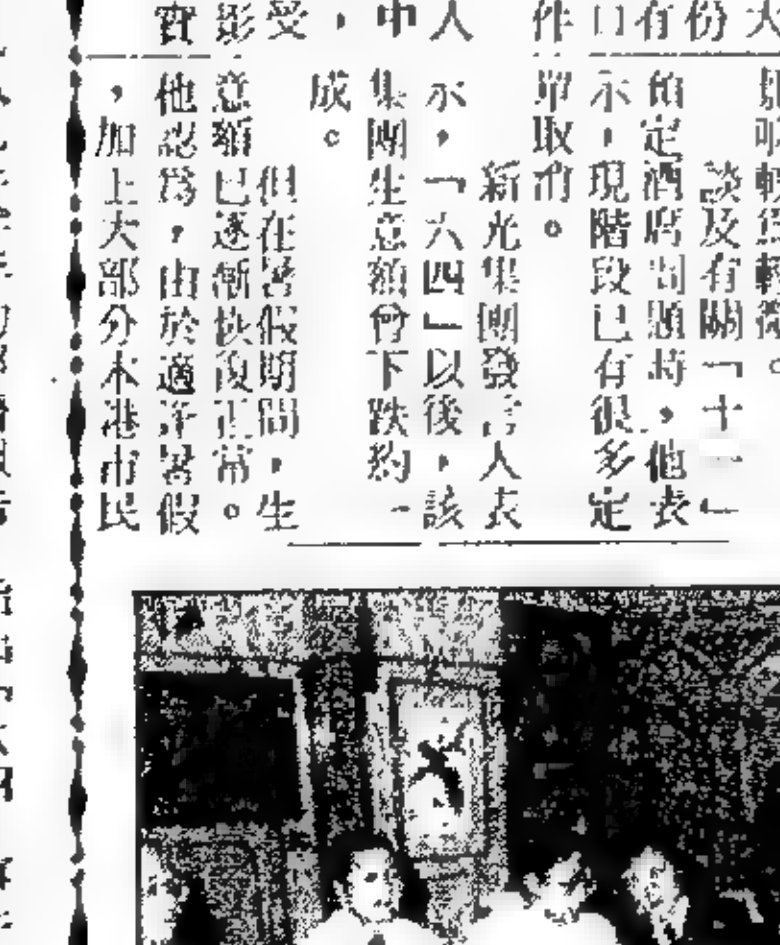 份
有
件
人
中
，
受
影
談及有關「十一」
預定酒席問題時，他表
示，現階段已有很多定
單取消。
新光集團發言人表
示，「六四」以後，該
集團生意額曾下跌約一
成。
但在暑假期間，生
意額已逐漸恢復正常。
他認爲，由於適逢暑假
，加上大部分本港市民